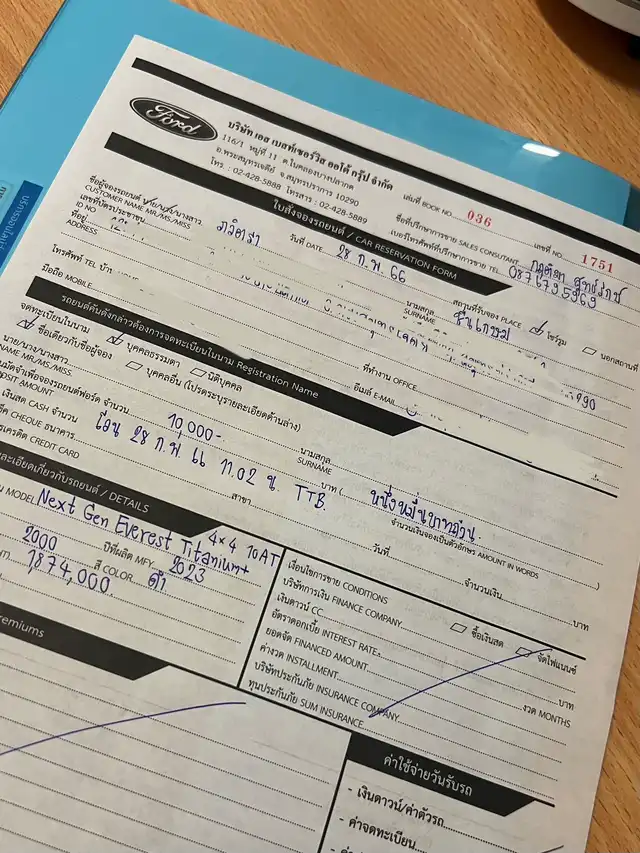 Ford
บริษัท เอส เบสท์เซอร์วิส ออโต้ กรุ๊ป จำกัด
116/1 หมู่ที่ 11 ต.ในคลองบางปลากด
อ.พระสมุทรเจดีย์ จ.สมุทรปราการ 10290
โทร : 02-428-5888 โทรสาร : 02-428-5889
เล่มที่ BOOK NO. 036 เลขที่ NO. 1751
ใบสั่งจองรถยนต์ / CAR RESERVATION FORM
ชื่อที่ปรึกษาการขาย SALES CONSULTANT
เบอร์โทรศัพท์ที่ปรึกษาการขาย TEL. 0876795969
วันที่ DATE 28 ก.พ. 66 สถานที่รับจอง PLACE โชว์รูม นอกสถานที่
ชื่อผู้จองรถยนต์ นาย/นาง/นางสาว ภวิตรา นามสกุล
CUSTOMER NAME MR./MS./MISS SURNAME
เลขที่บัตรประชาชน
ID NO
ที่อยู่
ADDRESS
โทรศัพท์ TEL บ้าน ที่ทำงาน OFFICE
มือถือ MOBILE อีเมล์ E-MAIL
รถยนต์คันดังกล่าวต้องการจดทะเบียนในนาม Registration Name
จดทะเบียนในนาม บุคคลธรรมดา นิติบุคคล
ชื่อเดียวกับชื่อผู้จอง บุคคลอื่น (โปรดระบุรายละเอียดด้านล่าง)
นาย/นาง/นางสาว นามสกุล
NAME MR./MS./MISS SURNAME
จำนวน 10,000- บาท ( หนึ่งหมื่นบาทถ้วน )
DEPOSIT AMOUNT จำนวนเงินจองเป็นตัวอักษร AMOUNT IN WORDS
เงินสด CASH จำนวน โอน 28 ก.พ 66 11.02 น. TTB.
CHEQUE ธนาคาร สาขา วันที่ จำนวนเงิน บาท
เครดิต CREDIT CARD
รายละเอียดเกี่ยวกับรถยนต์ / DETAILS
MODEL Next Gen Everest Titanium+ 4x4 10AT
2000 ปีที่ผลิต MFY. 2023
1874,000. สี COLOR ดำ
เงื่อนไขการขาย CONDITIONS ซื้อเงินสด จัดไฟแนนซ์
บริษัทการเงิน FINANCE COMPANY
เงินดาวน์ CC. บาท
อัตราดอกเบี้ย INTEREST RATE
ยอดจัด FINANCED AMOUNT
ค่างวด INSTALLMENT งวด MONTHS
บริษัทประกันภัย INSURANCE COMPANY
ทุนประกันภัย SUM INSURANCE
remiums
ค่าใช้จ่ายวันรับรถ
- เงินดาวน์/ค่าตัวรถ
- ค่าจดทะเบียน